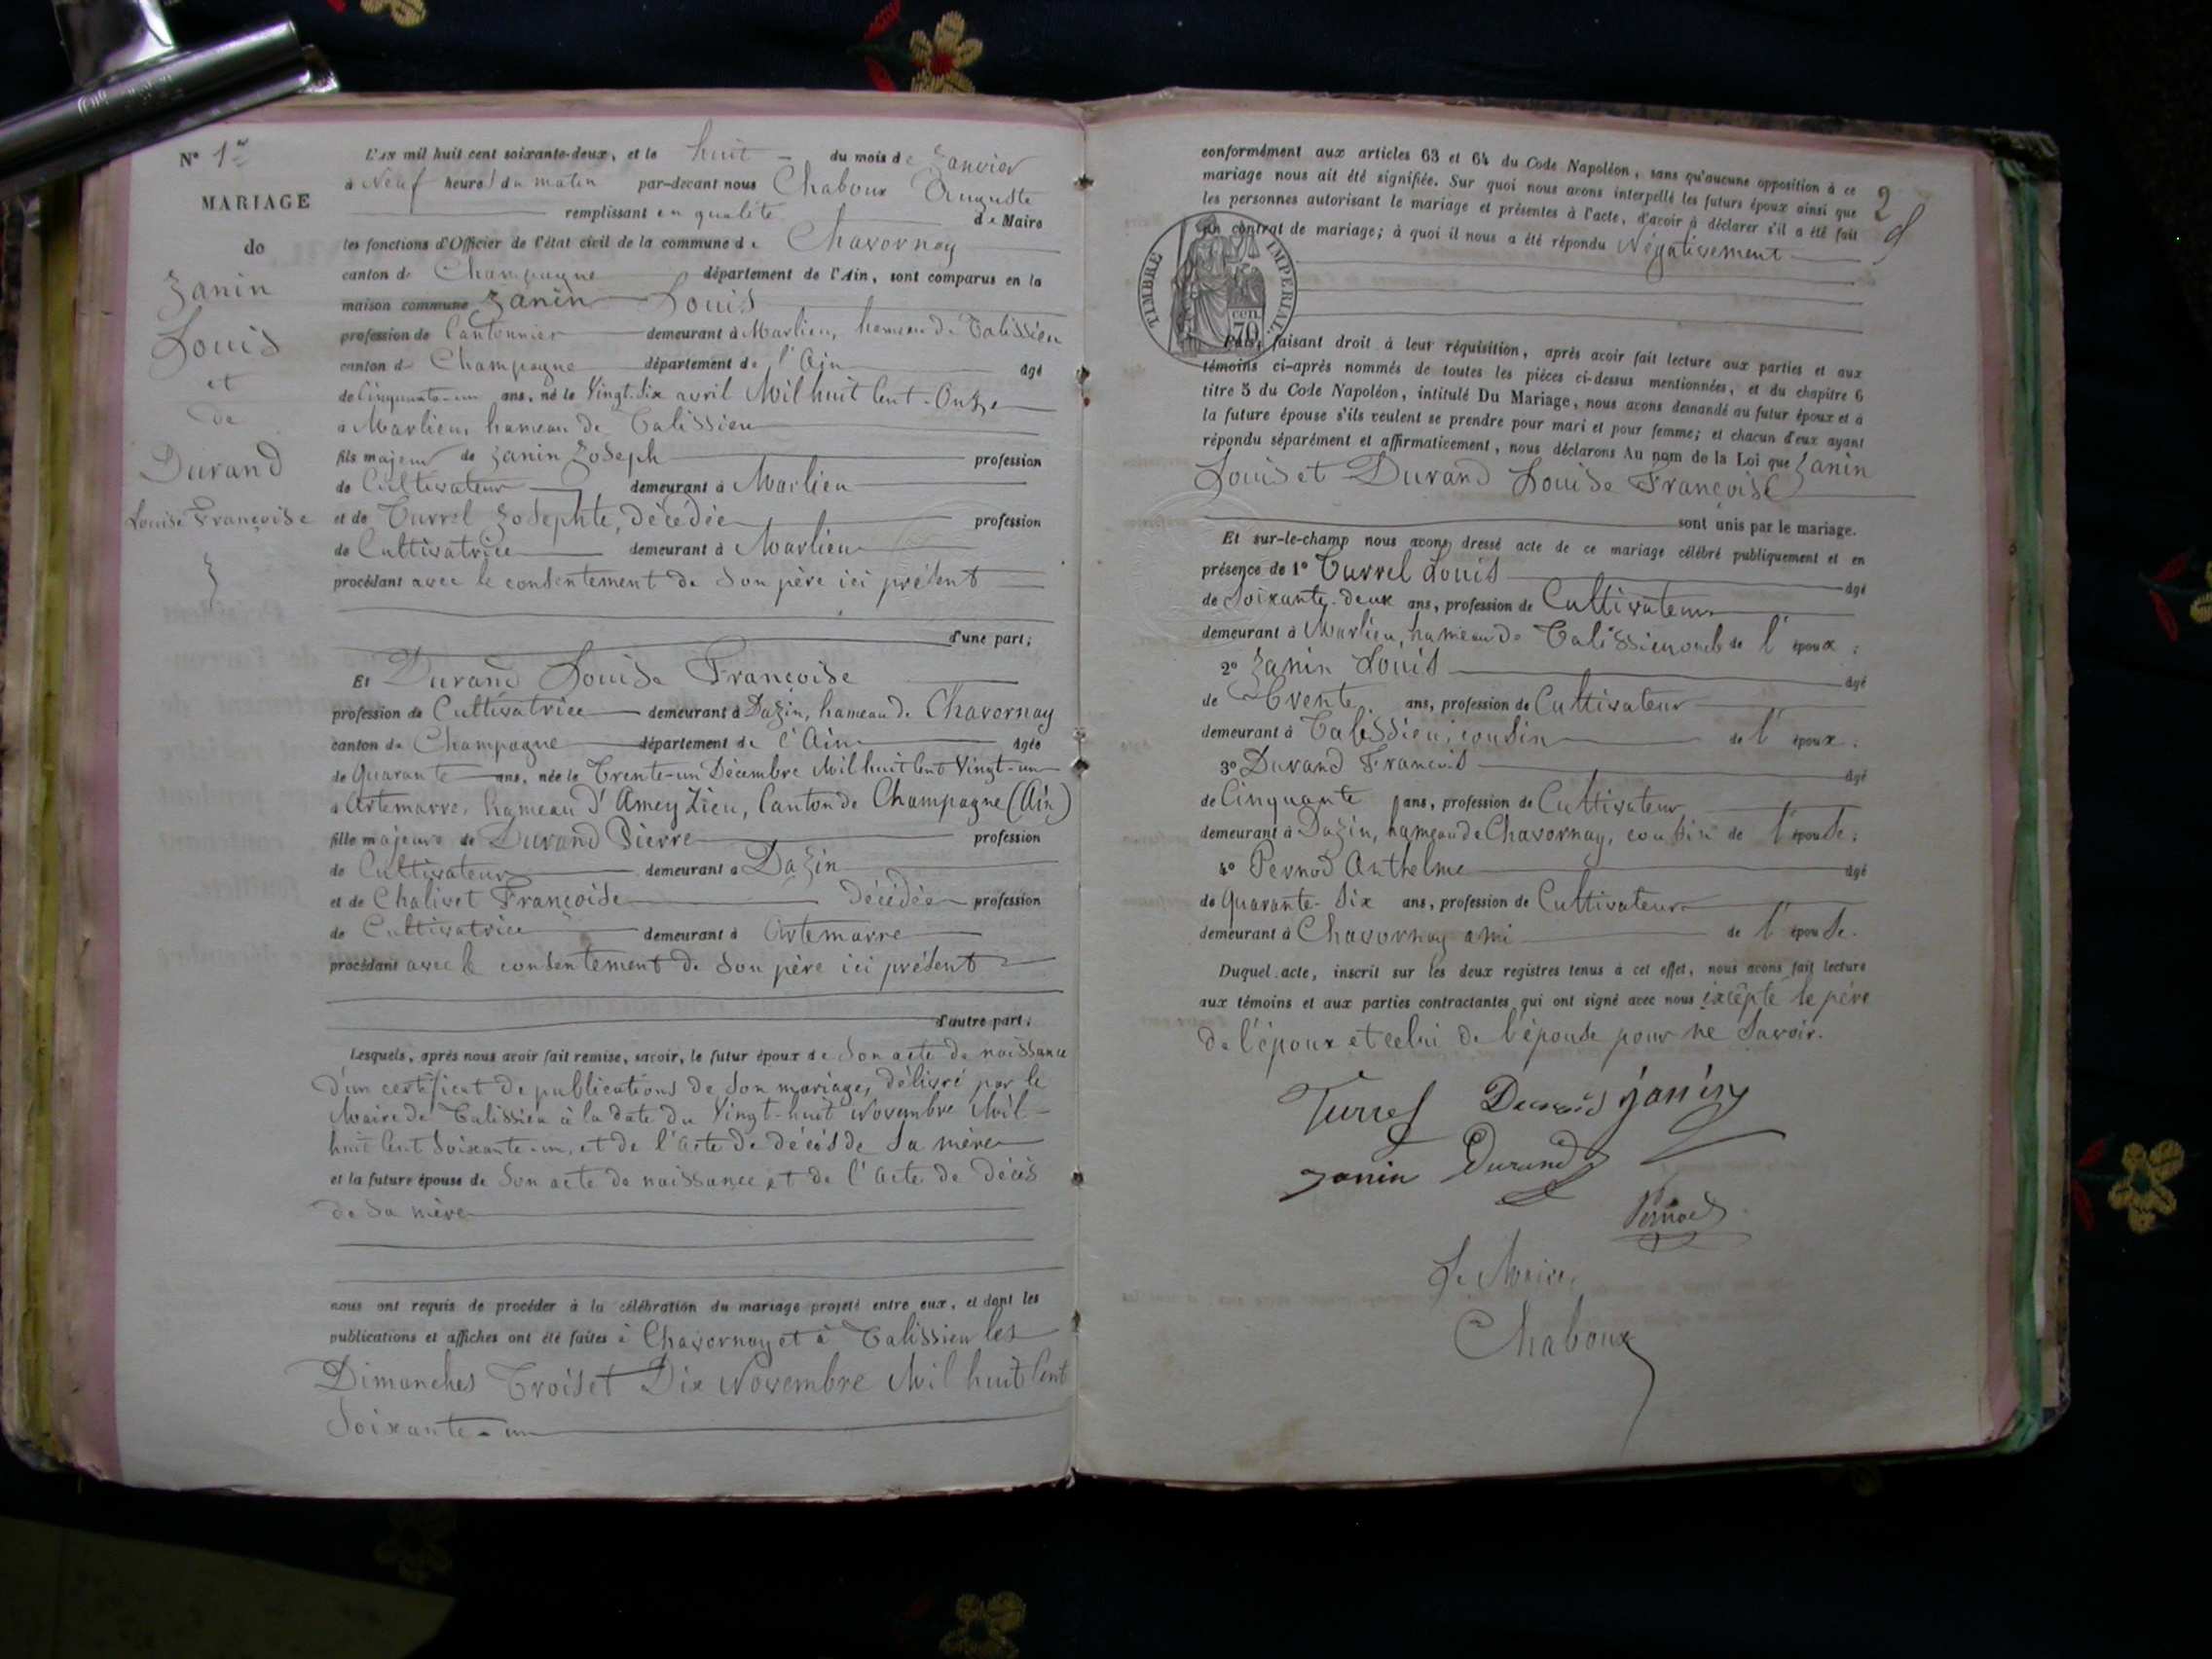 N° 1er
MARIAGE
de
Janin
Louis
et
de
Durand
Louise Françoise
L'an mil huit cent soixante-deux, et le huit du mois de Janvier
à Neuf heures du matin par-devant nous Chaboux Auguste
remplissant en qualité de Maire
les fonctions d'Officier de l'état civil de la commune de Chavornay
canton de Champagne département de l'Ain, sont comparus en la
maison commune Janin Louis
profession de Cantonnier demeurant à Marlieu, hameau de Talissieu
canton de Champagne département de l'Ain âgé
de Cinquante-un ans, né le Vingt-six avril Mil huit Cent-Onze
à Marlieu hameau de Talissieu
fils majeur de Janin Joseph profession
de Cultivateur demeurant à Marlieu
et de Turrel Josephte, décédée profession
de Cultivatrice demeurant à Marlieu
procédant avec le consentement de son père ici présent
d'une part;
Et Durand Louise Françoise
profession de Cultivatrice demeurant à Dazin, hameau de Chavornay
canton de Champagne département de l'Ain âgée
de Quarante ans, née le Trente-un Décembre Mil huit Cent Vingt-un
à Artemarre, hameau d'Ameyzieu, Canton de Champagne (Ain)
fille majeure de Durand Pierre profession
de Cultivateur demeurant à Dazin
et de Chalivet Françoise décédée profession
de Cultivatrice demeurant à Artemarre
procédant avec le consentement de son père ici présent
d'autre part;
Lesquels, après nous avoir fait remise, savoir, le futur époux de son acte de naissance
d'un certificat de publications de son mariage, délivré par le
Maire de Talissieu à la date du Vingt-huit Novembre Mil-
huit Cent Soixante-un, et de l'acte de décès de sa mère
et la future épouse de son acte de naissance et de l'acte de décès
de sa mère
nous ont requis de procéder à la célébration du mariage projeté entre eux, et dont les
publications et affiches ont été faites à Chavornay et à Talissieu les
Dimanches Trois et Dix Novembre Mil huit Cent
Soixante-un
2
conformément aux articles 63 et 64 du Code Napoléon, sans qu'aucune opposition à ce
mariage nous ait été signifiée. Sur quoi nous avons interpellé les futurs époux ainsi que
les personnes autorisant le mariage et présentes à l'acte, d'avoir à déclarer s'il a été fait
un contrat de mariage; à quoi il nous a été répondu Négativement
TIMBRE IMPERIAL
70 cen.
Puis, faisant droit à leur réquisition, après avoir fait lecture aux parties et aux
témoins ci-après nommés de toutes les pièces ci-dessus mentionnées, et du chapitre 6
titre 5 du Code Napoléon, intitulé Du Mariage, nous avons demandé au futur époux et à
la future épouse s'ils veulent se prendre pour mari et pour femme; et chacun d'eux ayant
répondu séparément et affirmativement, nous déclarons Au nom de la Loi que Janin
Louis et Durand Louise Françoise
sont unis par le mariage.
Et sur-le-champ nous avons dressé acte de ce mariage célébré publiquement et en
présence de 1° Turrel Louis âgé
de Soixante-deux ans, profession de Cultivateur
demeurant à Marlieu, hameau de Talissieu oncle de l'époux;
2° Janin Louis âgé
de Trente ans, profession de Cultivateur
demeurant à Talissieu, cousin de l'époux.
3° Durand Francois âgé
de Cinquante ans, profession de Cultivateur
demeurant à Dazin, hameau de Chavornay, cousin de l'épouse;
4° Pernod Anthelme âgé
de Quarante-six ans, profession de Cultivateur
demeurant à Chavornay ami de l'épouse.
Duquel acte, inscrit sur les deux registres tenus à cet effet, nous avons fait lecture
aux témoins et aux parties contractantes qui ont signé avec nous excepté le père
de l'époux et celui de l'épouse pour ne savoir.
Turrel Durand janin
Janin Durand
Pernod
Le Maire,
Chaboux